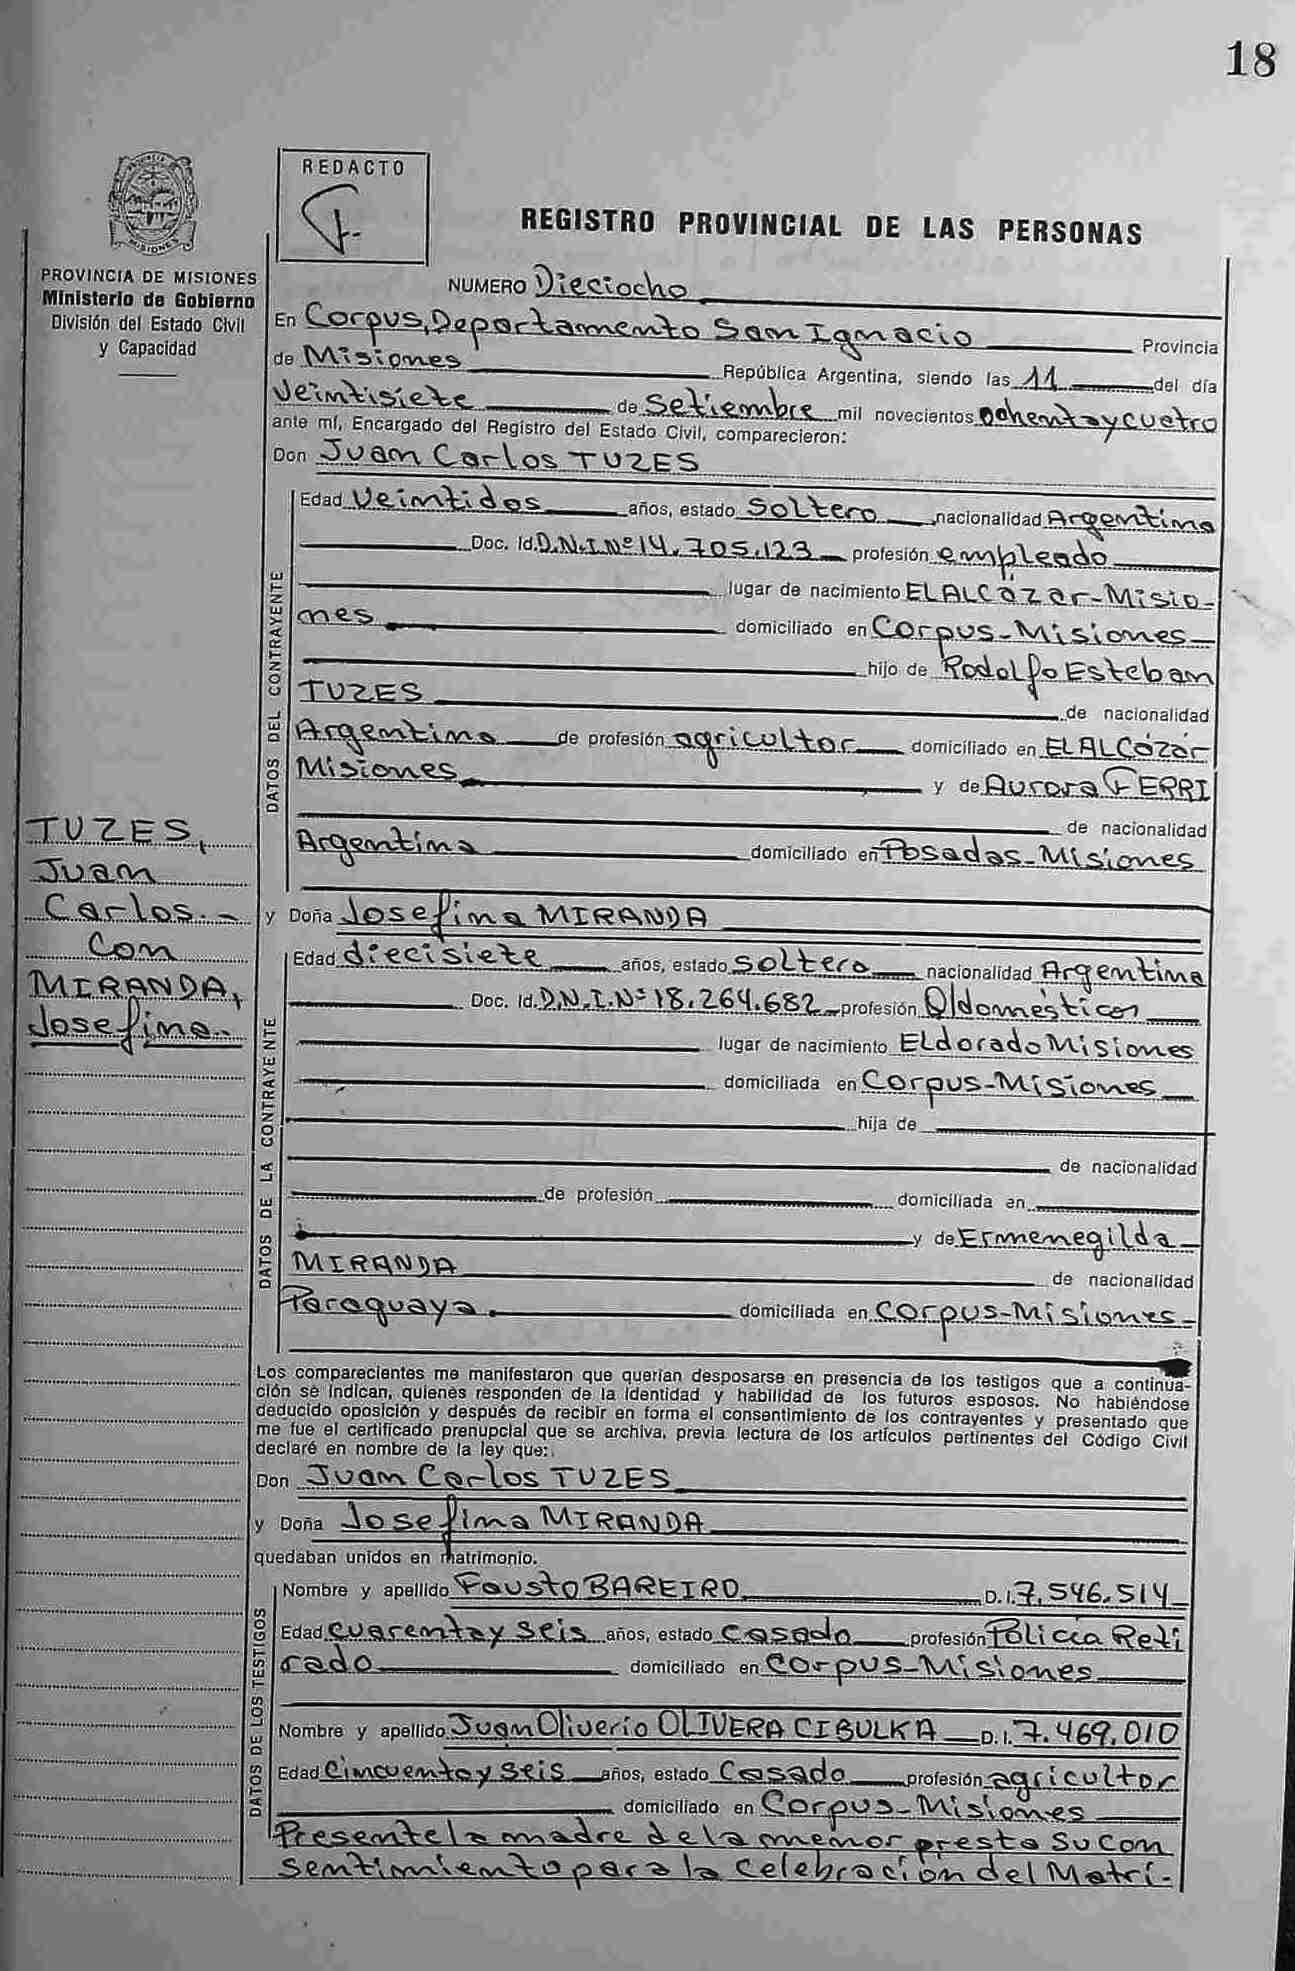 18
REDACTO
REGISTRO PROVINCIAL DE LAS PERSONAS
PROVINCIA DE MISIONES
Ministerio de Gobierno
División del Estado Civil
y Capacidad
NUMERO Dieciocho
En Corpus, Departamento San Ignacio Provincia
de Misiones República Argentina, siendo las 11 del día
veintisiete de Setiembre mil novecientos ochentaycuatro
ante mí, Encargado del Registro del Estado Civil, comparecieron:
Don Juan Carlos TUZES
DATOS DEL CONTRAYENTE
Edad veintidos años, estado soltero nacionalidad Argentina
Doc. Id. D.N.I.Nº 14.705.123 profesión empleado
lugar de nacimiento EL ALCázar-Misio-
nes domiciliado en Corpus-Misiones
hijo de Rodolfo Esteban
TUZES de nacionalidad
Argentina de profesión agricultor domiciliado en EL ALCázar
Misiones y de Aurora FERRI
de nacionalidad
Argentina domiciliado en Posadas-Misiones
TUZES,
Juan
Carlos.-
Con
MIRANDA,
Josefina.
y Doña Josefina MIRANDA
DATOS DE LA CONTRAYENTE
Edad diecisiete años, estado soltera nacionalidad Argentina
Doc. Id. D.N.I.Nº 18.264.682 profesión Q/domésticos
lugar de nacimiento ELdorado Misiones
domiciliada en Corpus-Misiones
hija de
de nacionalidad
de profesión domiciliada en
y de Ermenegilda
MIRANDA de nacionalidad
Paraguaya. domiciliada en Corpus-Misiones-
Los comparecientes me manifestaron que querían desposarse en presencia de los testigos que a continua-
ción se indican, quienes responden de la identidad y habilidad de los futuros esposos. No habiéndose
deducido oposición y después de recibir en forma el consentimiento de los contrayentes y presentado que
me fue el certificado prenupcial que se archiva, previa lectura de los artículos pertinentes del Código Civil
declaré en nombre de la ley que:
Don Juan Carlos TUZES
y Doña Josefina MIRANDA
quedaban unidos en matrimonio.
DATOS DE LOS TESTIGOS
Nombre y apellido Fausto BAREIRO D.I. 7.546.514
Edad cuarentay seis años, estado casado profesión Policía Reti
rado domiciliado en Corpus-Misiones
Nombre y apellido Juan Oliverio OLIVERA CIBULKA D.I. 7.469.010
Edad Cincuentay seis años, estado Casado profesión agricultor
domiciliado en Corpus-Misiones
Presente la madre de la menor presta su con
sentimiento para la celebración del Matri-